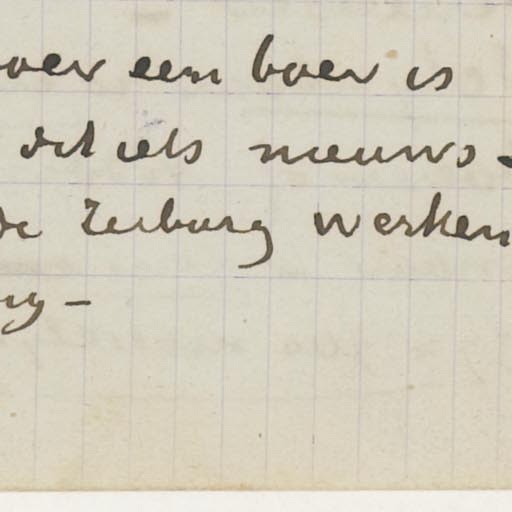 boer een boer is
dit iets nieuws -
de Zeeburg werken